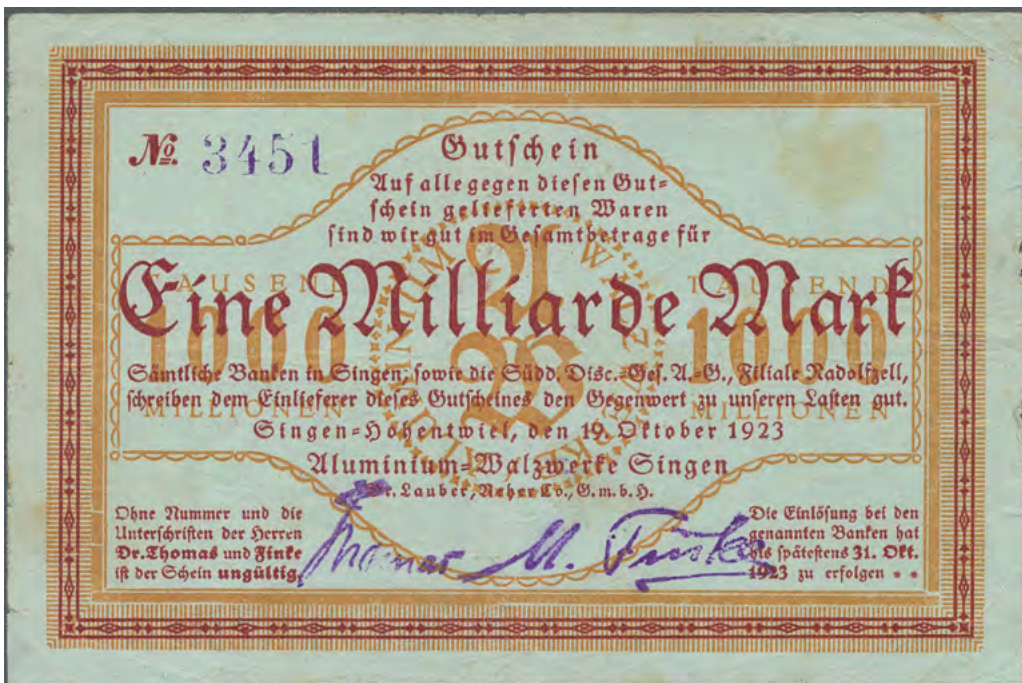 №. 3451
Gutschein
Auf alle gegen diesen Gut-
schein gelieferten Waren
sind wir gut im Gesamtbetrage für
TAUSEND
TAUSEND
Eine Milliarde Mark
1000
1000
ALUMINIUM WALZWERKE
A
W
Sämtliche Banken in Singen, sowie die Südd. Disc.-Ges. A.-G., Filiale Radolfzell,
MILLIONEN
MILLIONEN
schreiben dem Einlieferer dieses Gutscheines den Gegenwert zu unseren Lasten gut.
Singen-Hohentwiel, den 19. Oktober 1923
Aluminium-Walzwerke Singen
Dr. Lauber, Neher Co., G.m.b.H.
Ohne Nummer und die
Unterschriften der Herren
Dr. Thomas und Finke
ist der Schein ungültig
Thomas M. Finke
Die Einlösung bei den
genannten Banken hat
bis spätestens 31. Okt.
1923 zu erfolgen